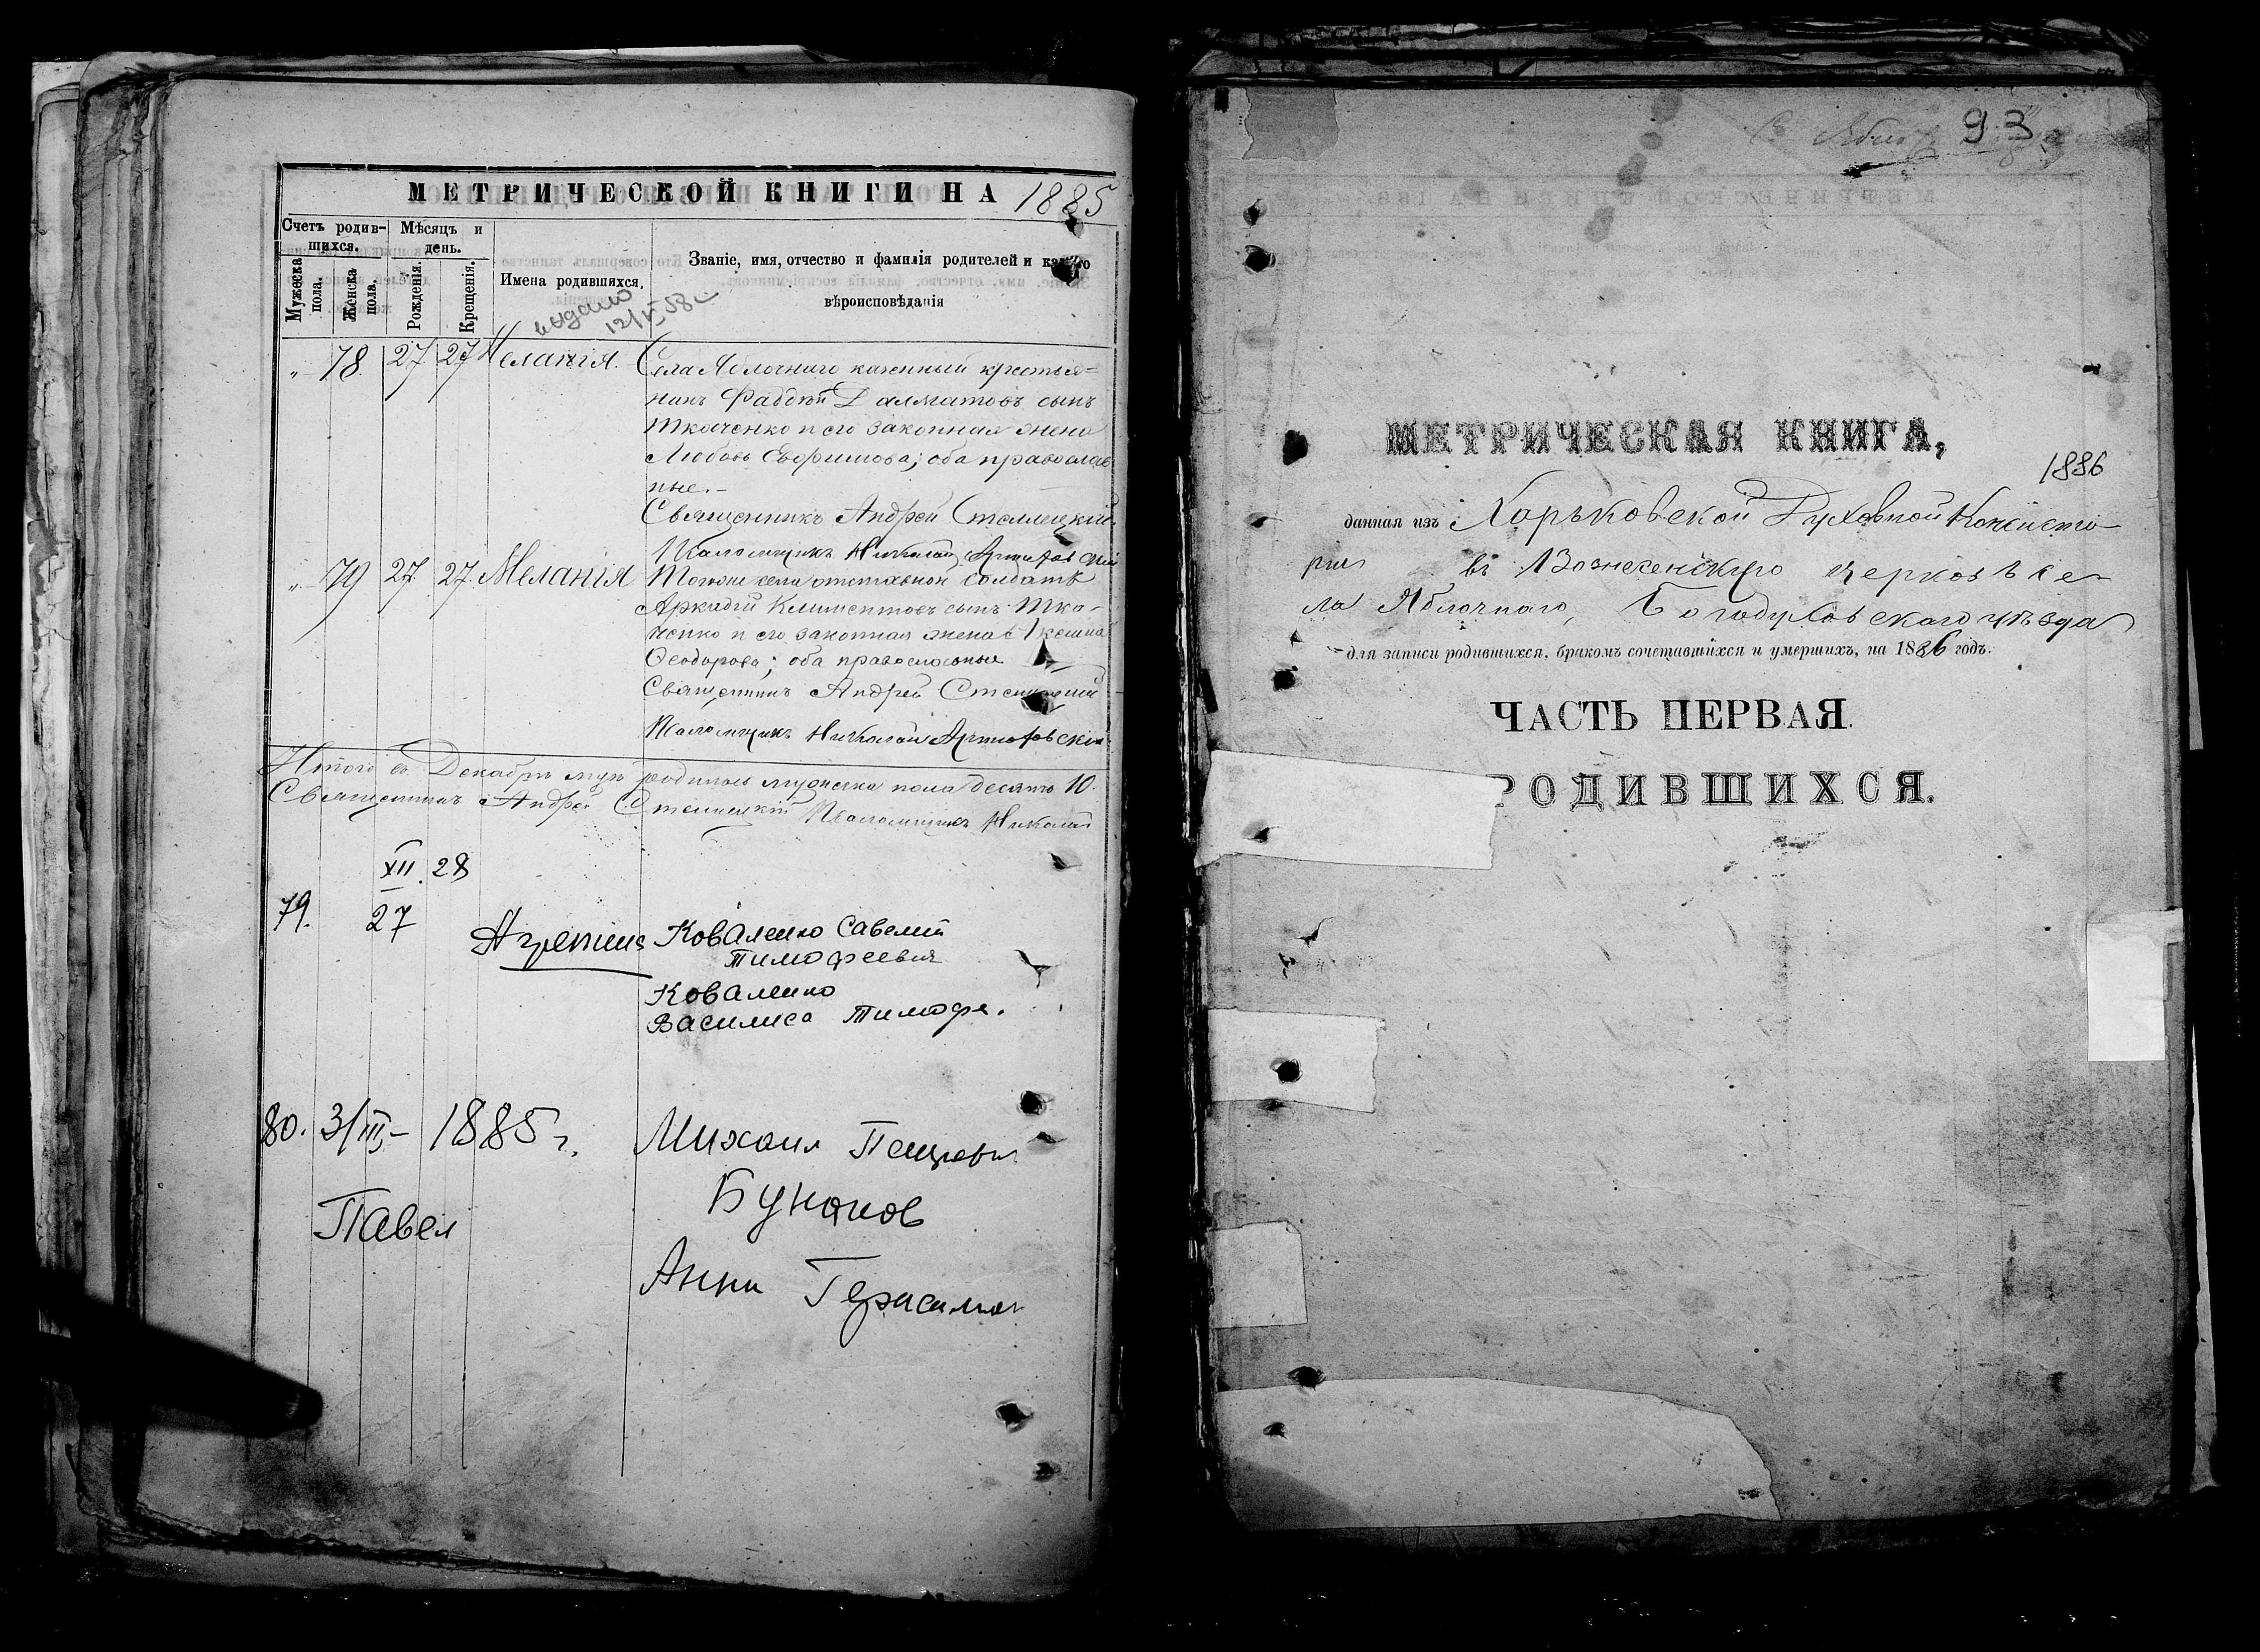 МЕТРИЧЕСКОЙ КНИГИ НА 1885
Счетъ родив-
шихся.
Мѣсяцъ и
день.
Мужеска пола.
Женска пола.
Рожденія.
Крещенія.
Имена родившихся.
Званіе, имя, отчество и фамилія родителей и какого
вѣроисповѣданія
выдано
12/V 58
" 78. 27 27 Меланія. Села Яблочнаго казенный крестья-
нинъ Фаддѣй Далматовъ сынъ
Ткаченко и его законная жена
Любовь Евфимова; оба православ
ные.-
Священникъ Андрей Стеллецкій.
Псаломщикъ Николай
" 79 27. 27. Меланія Тогоже села отставной солдатъ
Аркадій Климентовъ сынъ Тка-
ченко и его законная жена
Ѳеодорова; оба православные
Священникъ Андрей Стеллецкій
Псаломщикъ Николай
Итого въ Декабрѣ родилось мужеска пола десять 10.
Священникъ Андрей Стеллецкій Псаломщикъ Николай
XII. 28
79. 27
Коваленко Савелий
Тимофеевич
Коваленко
Василиса Тимофе.
80. 3/III- 1885 г. Михаил Петрович
Павел
Анна Герасимов
93
МЕТРИЧЕСКАЯ КНИГА,
1886
данная изъ Харьковской Духовной Консисто-
ріи въ Вознесенскую церковь се-
ла Яблочнаго, Богодуховскаго уѣзда
для записи родившихся, бракомъ сочетавшихся и умершихъ, на 1886 годъ.
ЧАСТЬ ПЕРВАЯ.
РОДИВШИХСЯ.